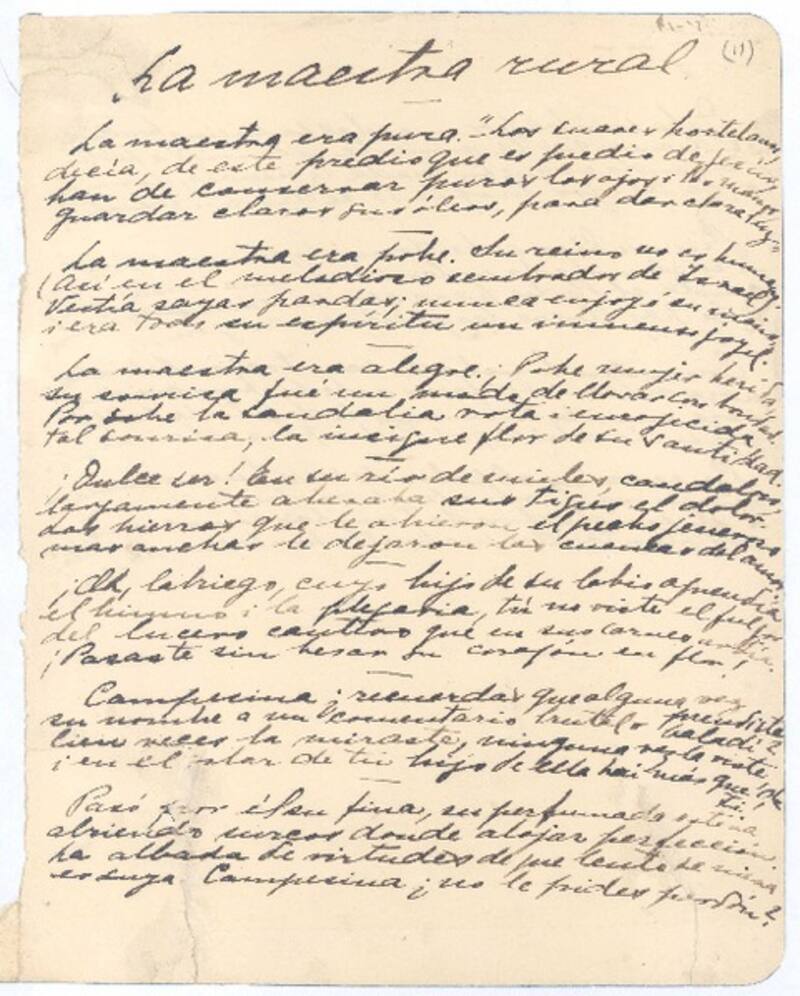 (11)
La maestra rural
La maestra era pura. "Los suaves hortelanos,
decía, de este predio que es predio de Jesús,
han de conservar puros los ojos i las manos
guardar claros sus óleos, para dar clara luz."
La maestra era pobre. Su reino no es humano.
(Así en el melodioso sembrador de Israel)
Vestía sayas pardas; nunca enjoyó su mano
i era todo su espíritu un inmenso joyel.
La maestra era alegre. ¡Pobre mujer herida
su sonrisa fué un modo de llorar con bondad.
Por sobre la sandalia rota i enrojecida
tal sonrisa, la insigne flor de su santidad.
¡Dulce ser! En su río de mieles, caudaloso,
largamente abrevaba sus tigres el dolor.
Los hierros que le abrieron el pecho generoso
mas anchas le dejaron las cuencas del amor.
¡Oh, labriego, cuyo hijo de su labio aprendía
el himno i la plegaria, tú no viste el fulgor
del lucero cautivo que en sus carnes ardía.
¡Pasaste sin besar su corazón en flor!
Campesina ¿recuerdas que alguna vez prendiste
su nombre a un comentario brutal o baladí?
Cien veces la miraste, ninguna vez la viste
i en el solar de tu hijo de ella hai más que de
ti!
Pasó por él su fina, su perfumada esteva
abriendo surcos donde alojar perfección
La albada de virtudes de que lento se nieva
es suya Campesina ¿no le pides perdón?